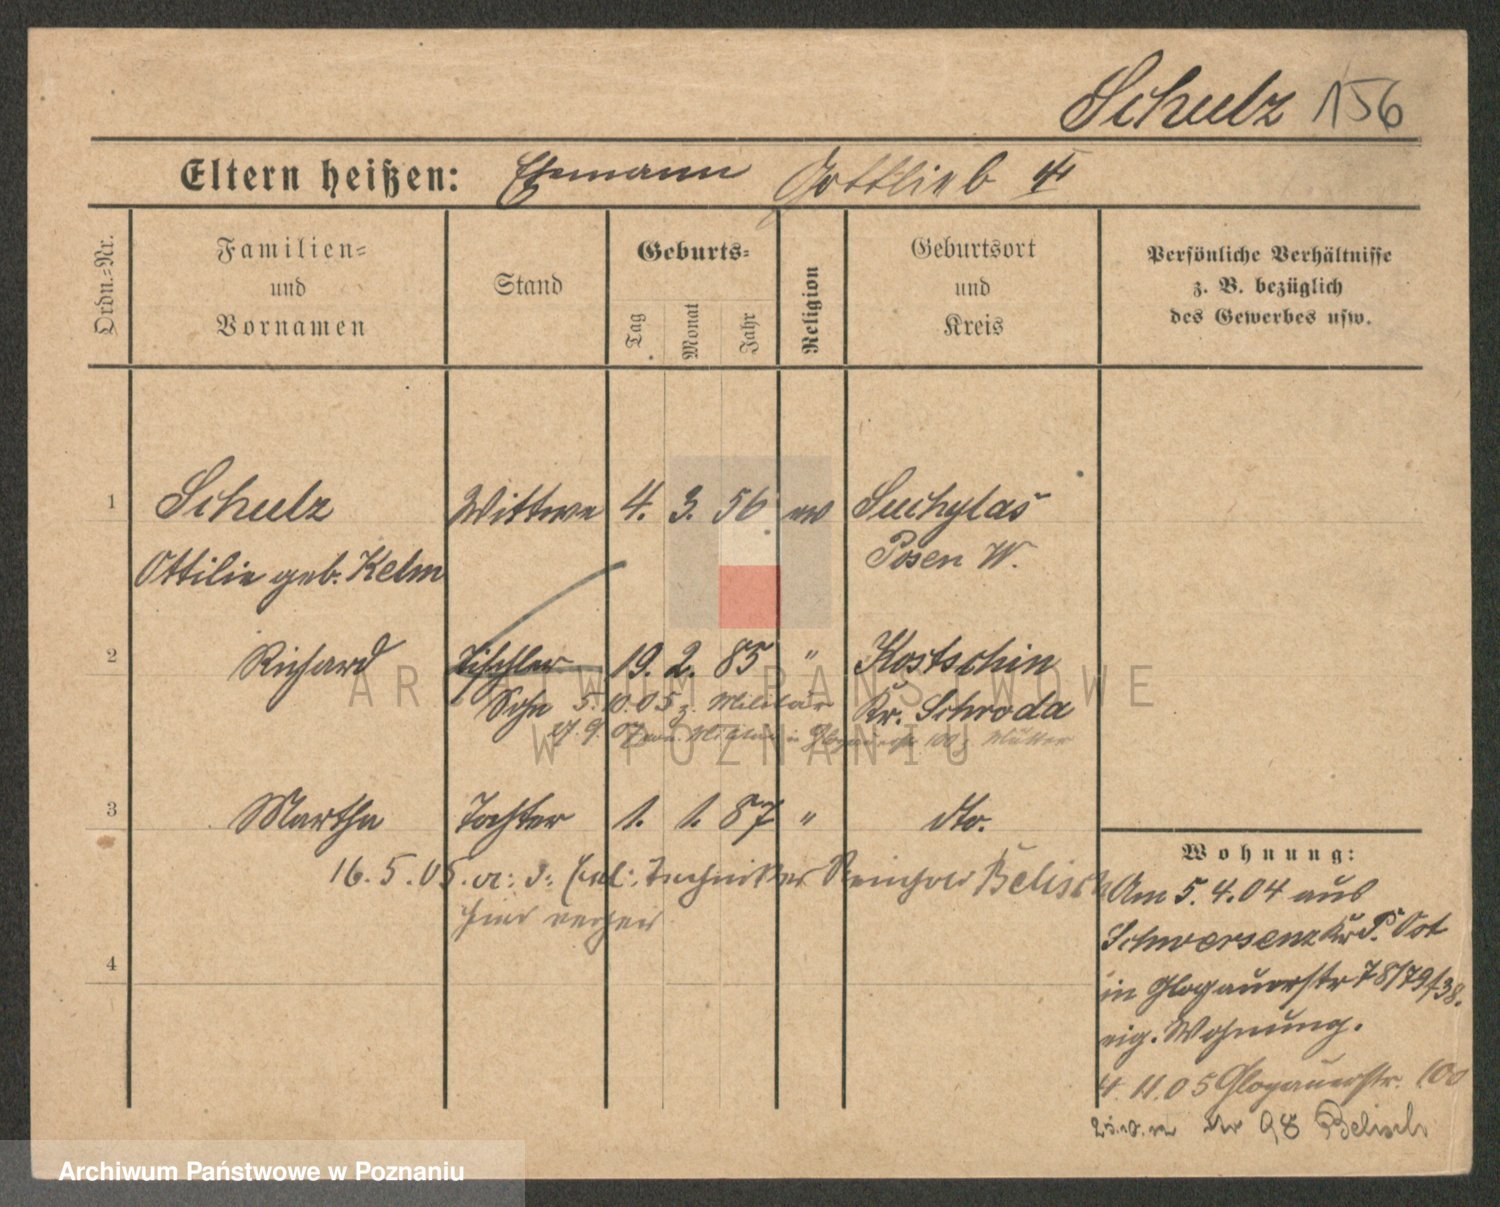 Schulz 156
Eltern heißen: Ehemann Gottlieb †
Ordn.-Nr.
Familien-
und
Vornamen
Stand
Geburts-
Tag
Monat
Jahr
Religion
Geburtsort
und
Kreis
Persönliche Verhältnisse
z. B. bezüglich
des Gewerbes usw.
1 Schulz Wittwe 4. 3. 56 ev Suchylas
Ottilie geb. Kelm Posen W.
2 Richard Tischler 19. 2. 85 " Kostschin
Sohn 5.10.05 z. Militär Kr. Schroda
27.9.07 von Militär in Glogauerstr 100 z Mutter
3 Martha Tochter 1. 1. 87 " dto.
16.5.05. Techniker Reinhold Belisch
hier
4
Wohnung:
Am 5.4.04 aus
Schwersenz Kr P. Ost
in Glogauerstr 78/79/38.
eig. Wohnung.
4.11.05 Glogauerstr. 100
98 Belisch
ARCHIWUM PAŃSTWOWE
W POZNANIU
Archiwum Państwowe w Poznaniu